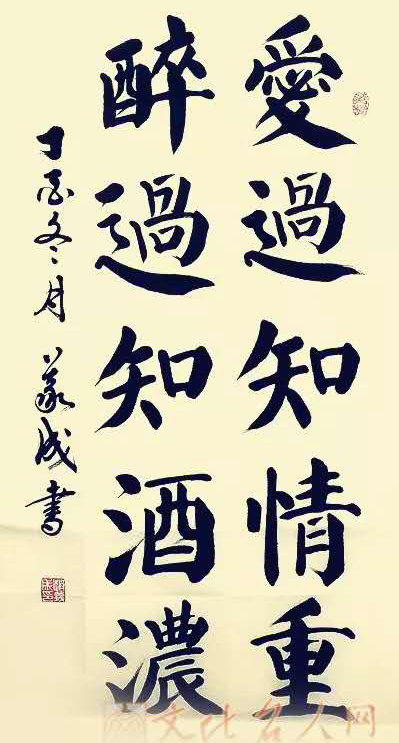 愛過知情重
醉過知酒濃
丁酉冬月 義成书
文化名人网